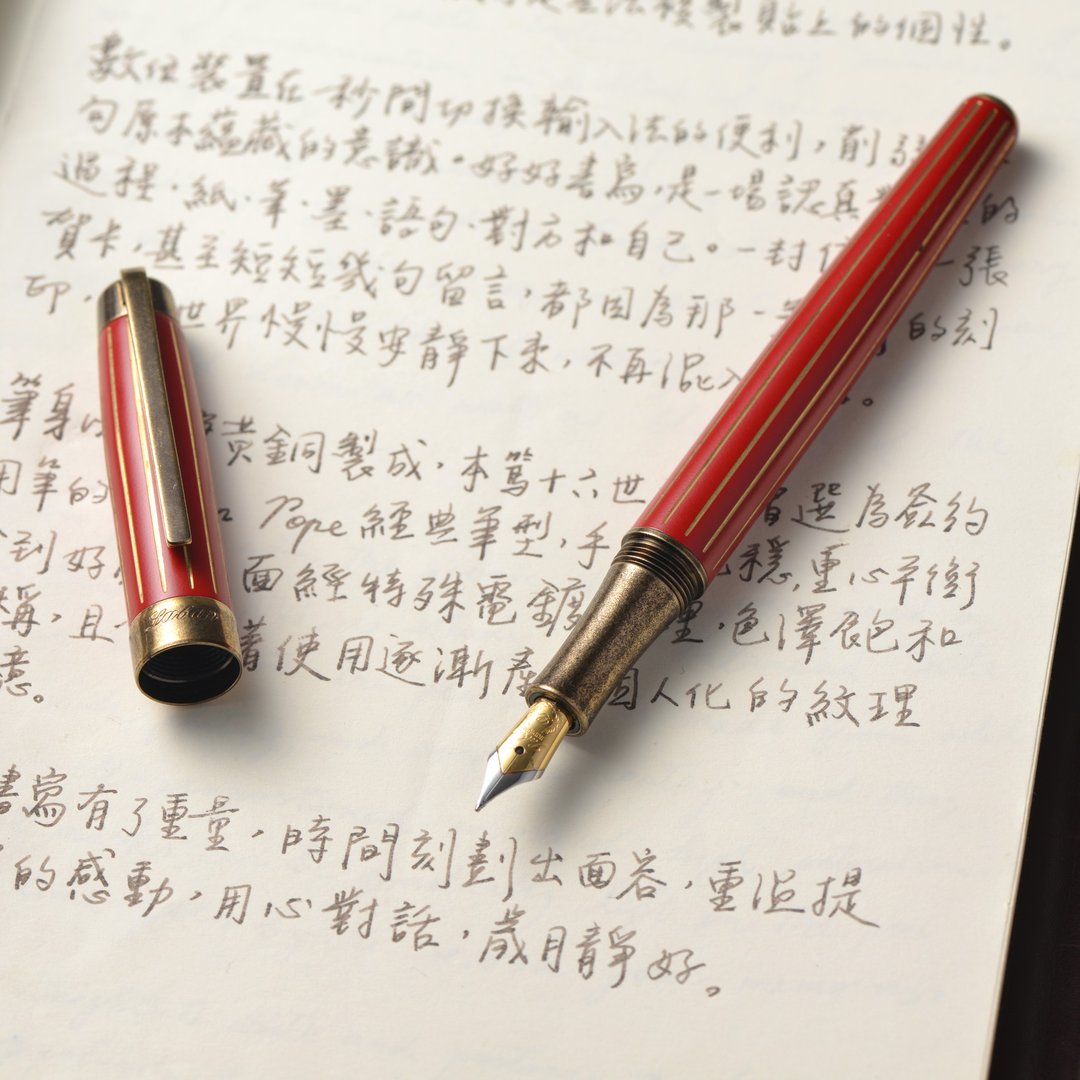 無法複製貼上的個性。
數位裝置在秒間切換輸入法的便利，削弱
句原本蘊藏的意識。好好書寫，是一場認真 的
過程，紙、筆、墨、語句、對方和自己。一封 一張
賀卡，甚至短短幾句留言，都因為那一 的刻
印， 世界慢慢安靜下來，不再混入 。
筆身 黃銅製成，本篤十六世 選為簽約
用筆的 Pope 經典筆型，手 穩，重心平衡
到好 面經特殊電鍍 理，色澤飽和
稱，且 著使用逐漸產 個人化的紋理
意。
書寫有了重量，時間刻劃出面容，重溫提
的感動，用心對話，歲月靜好。